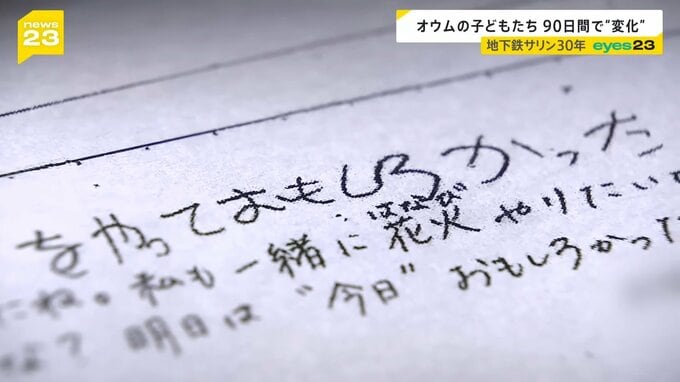 news
23
オウムの子どもたち 90日間で“変化”
地下鉄サリン30年 eyes23
をやっておもしろかった
はなび
たね。私も一緒に花火やりたい
な? 明日は“今日”おもしろかった